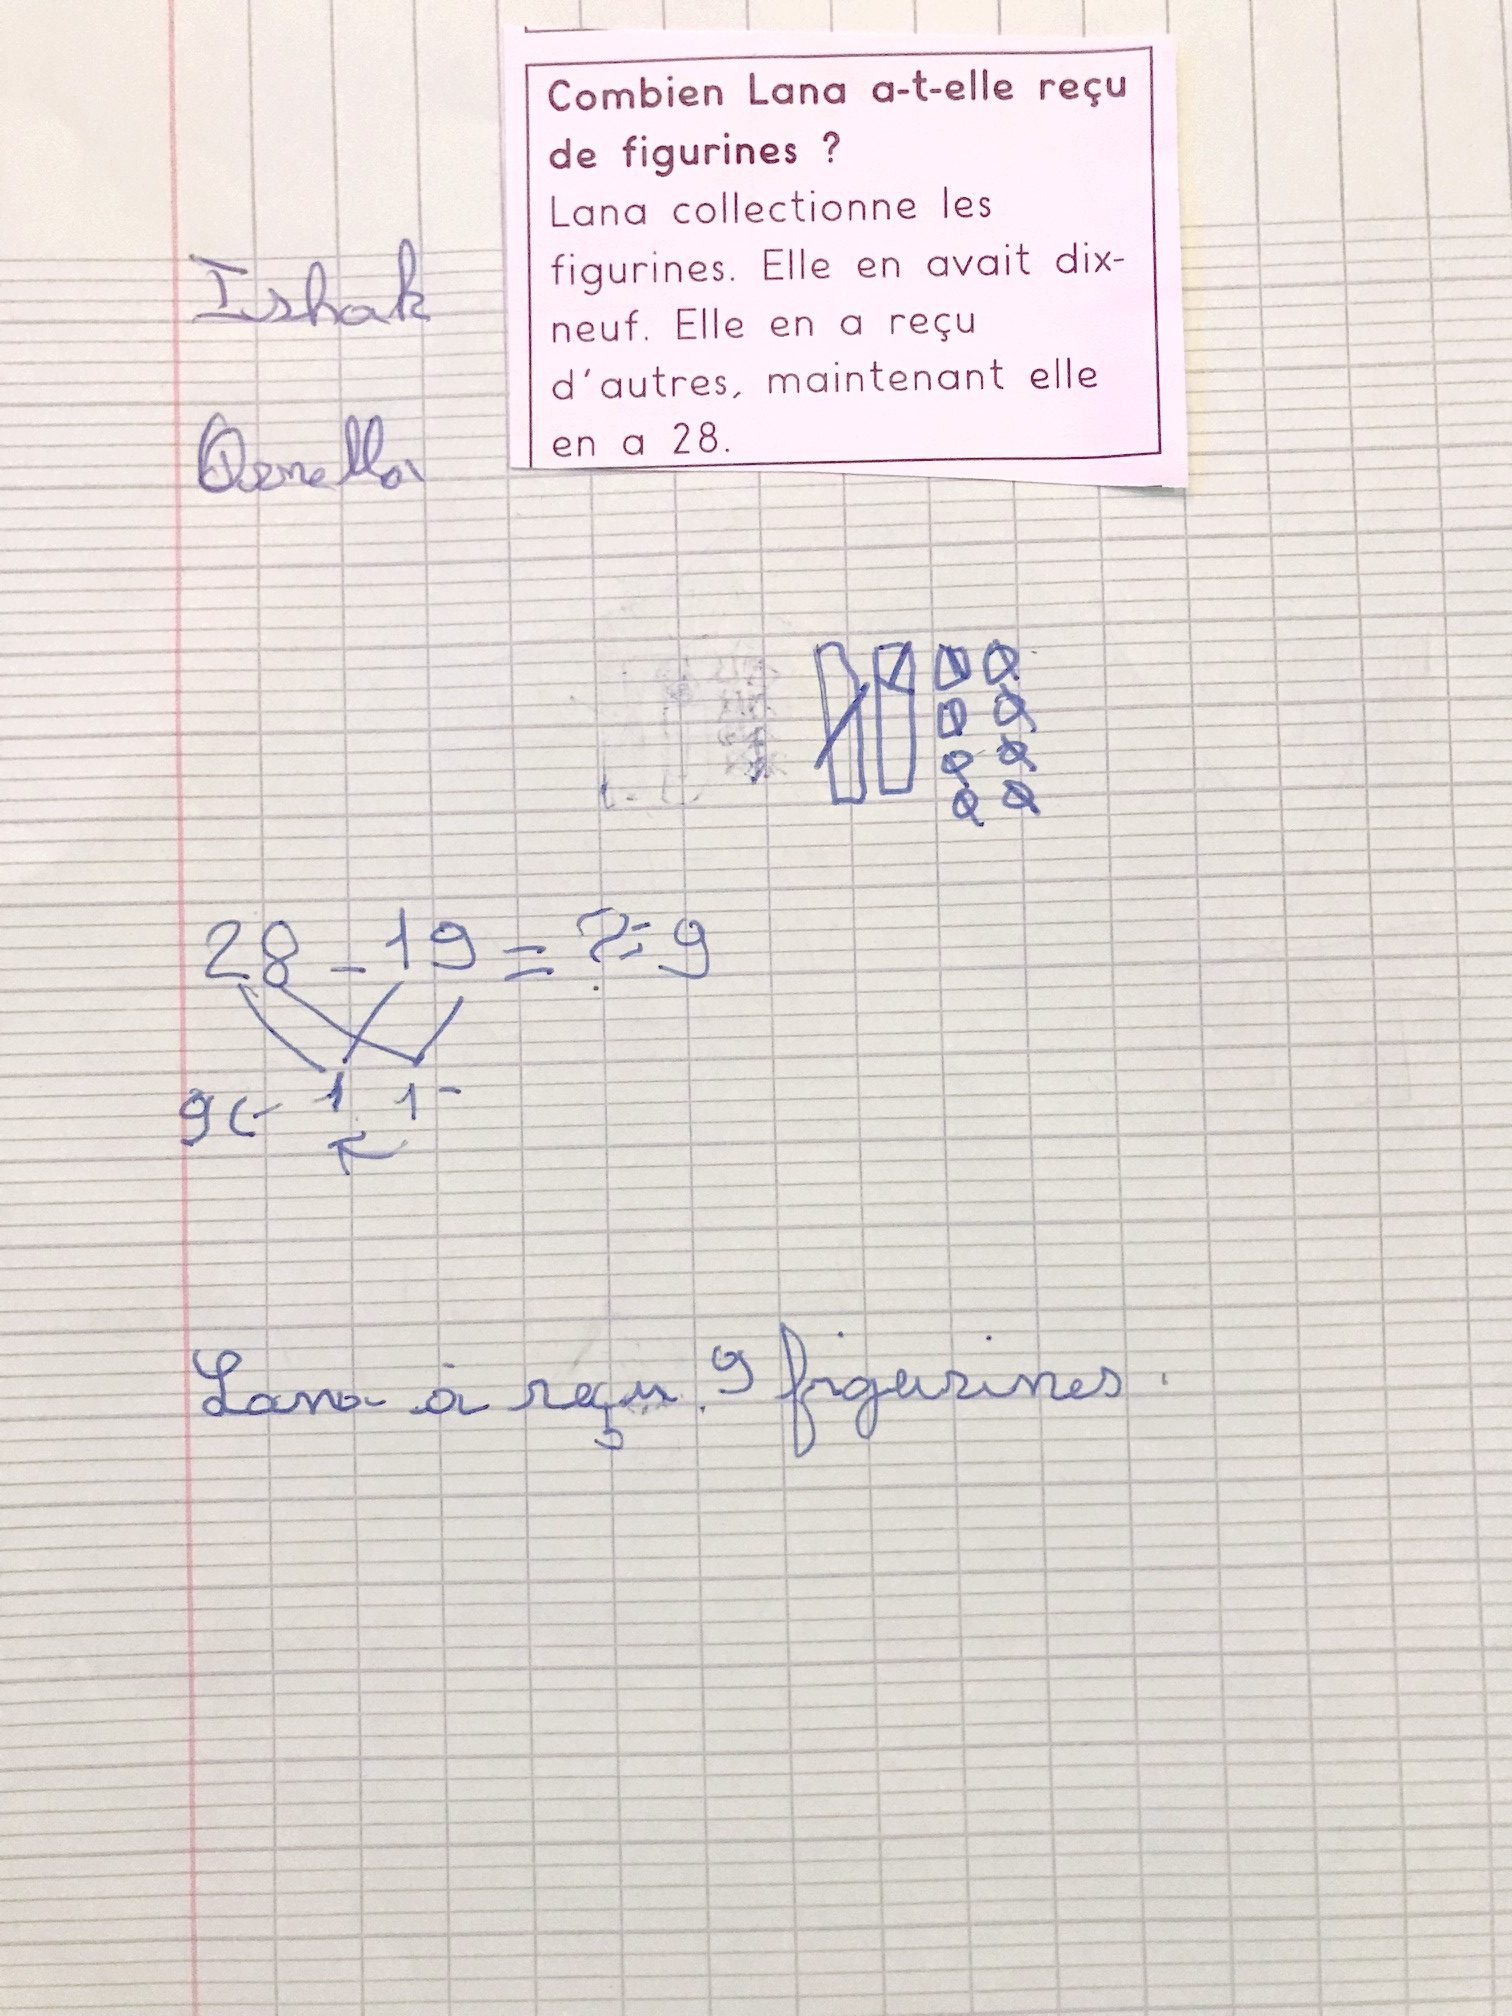 Combien Lana a-t-elle reçu
de figurines ?
Lana collectionne les
figurines. Elle en avait dix-
neuf. Elle en a reçu
d'autres, maintenant elle
en a 28.
Ishak
Ornella
28 - 19 = ? = 9
9 ← 1 1 -
Lana à reçu 9 figurines.